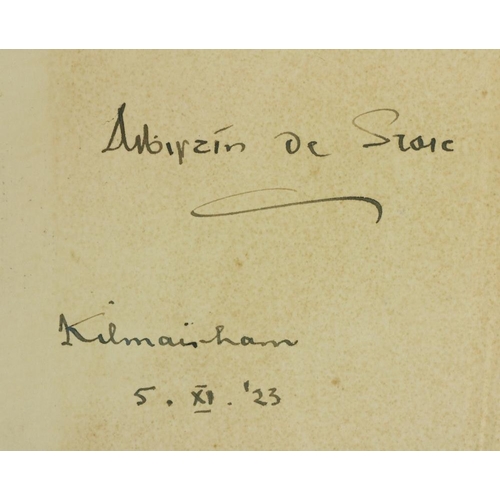 Aibistín de Staic
Kilmainham
5. XI. '23